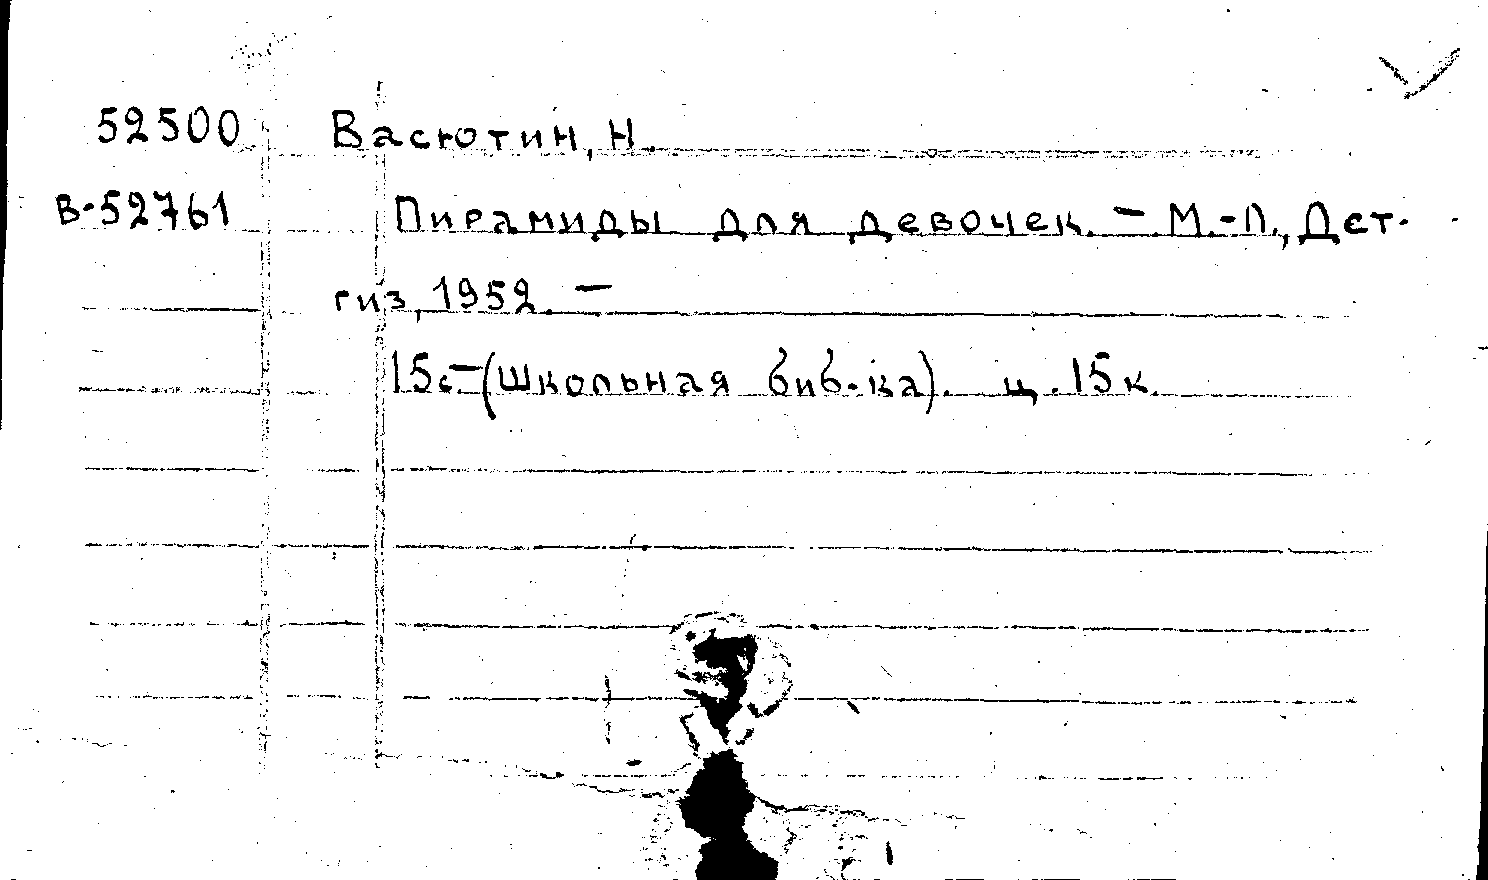 52500 Васютин, Н.
В-52761 Пирамиды для девочек. – М.-Л., Дет-
гиз, 1952. –
15с.–(Школьная биб-ка). ц.15к.